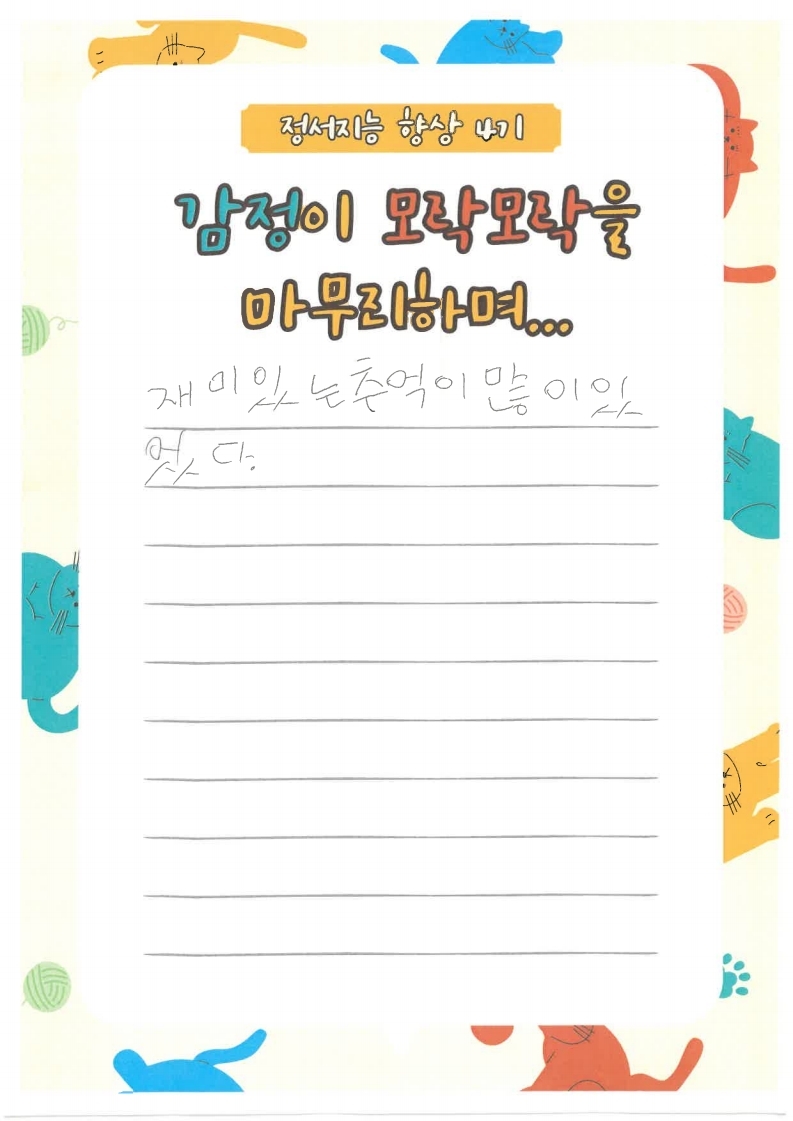 정서지능 향상 4기
감정이 모락모락을
마무리하며...
재미있는추억이 많이있
었다.